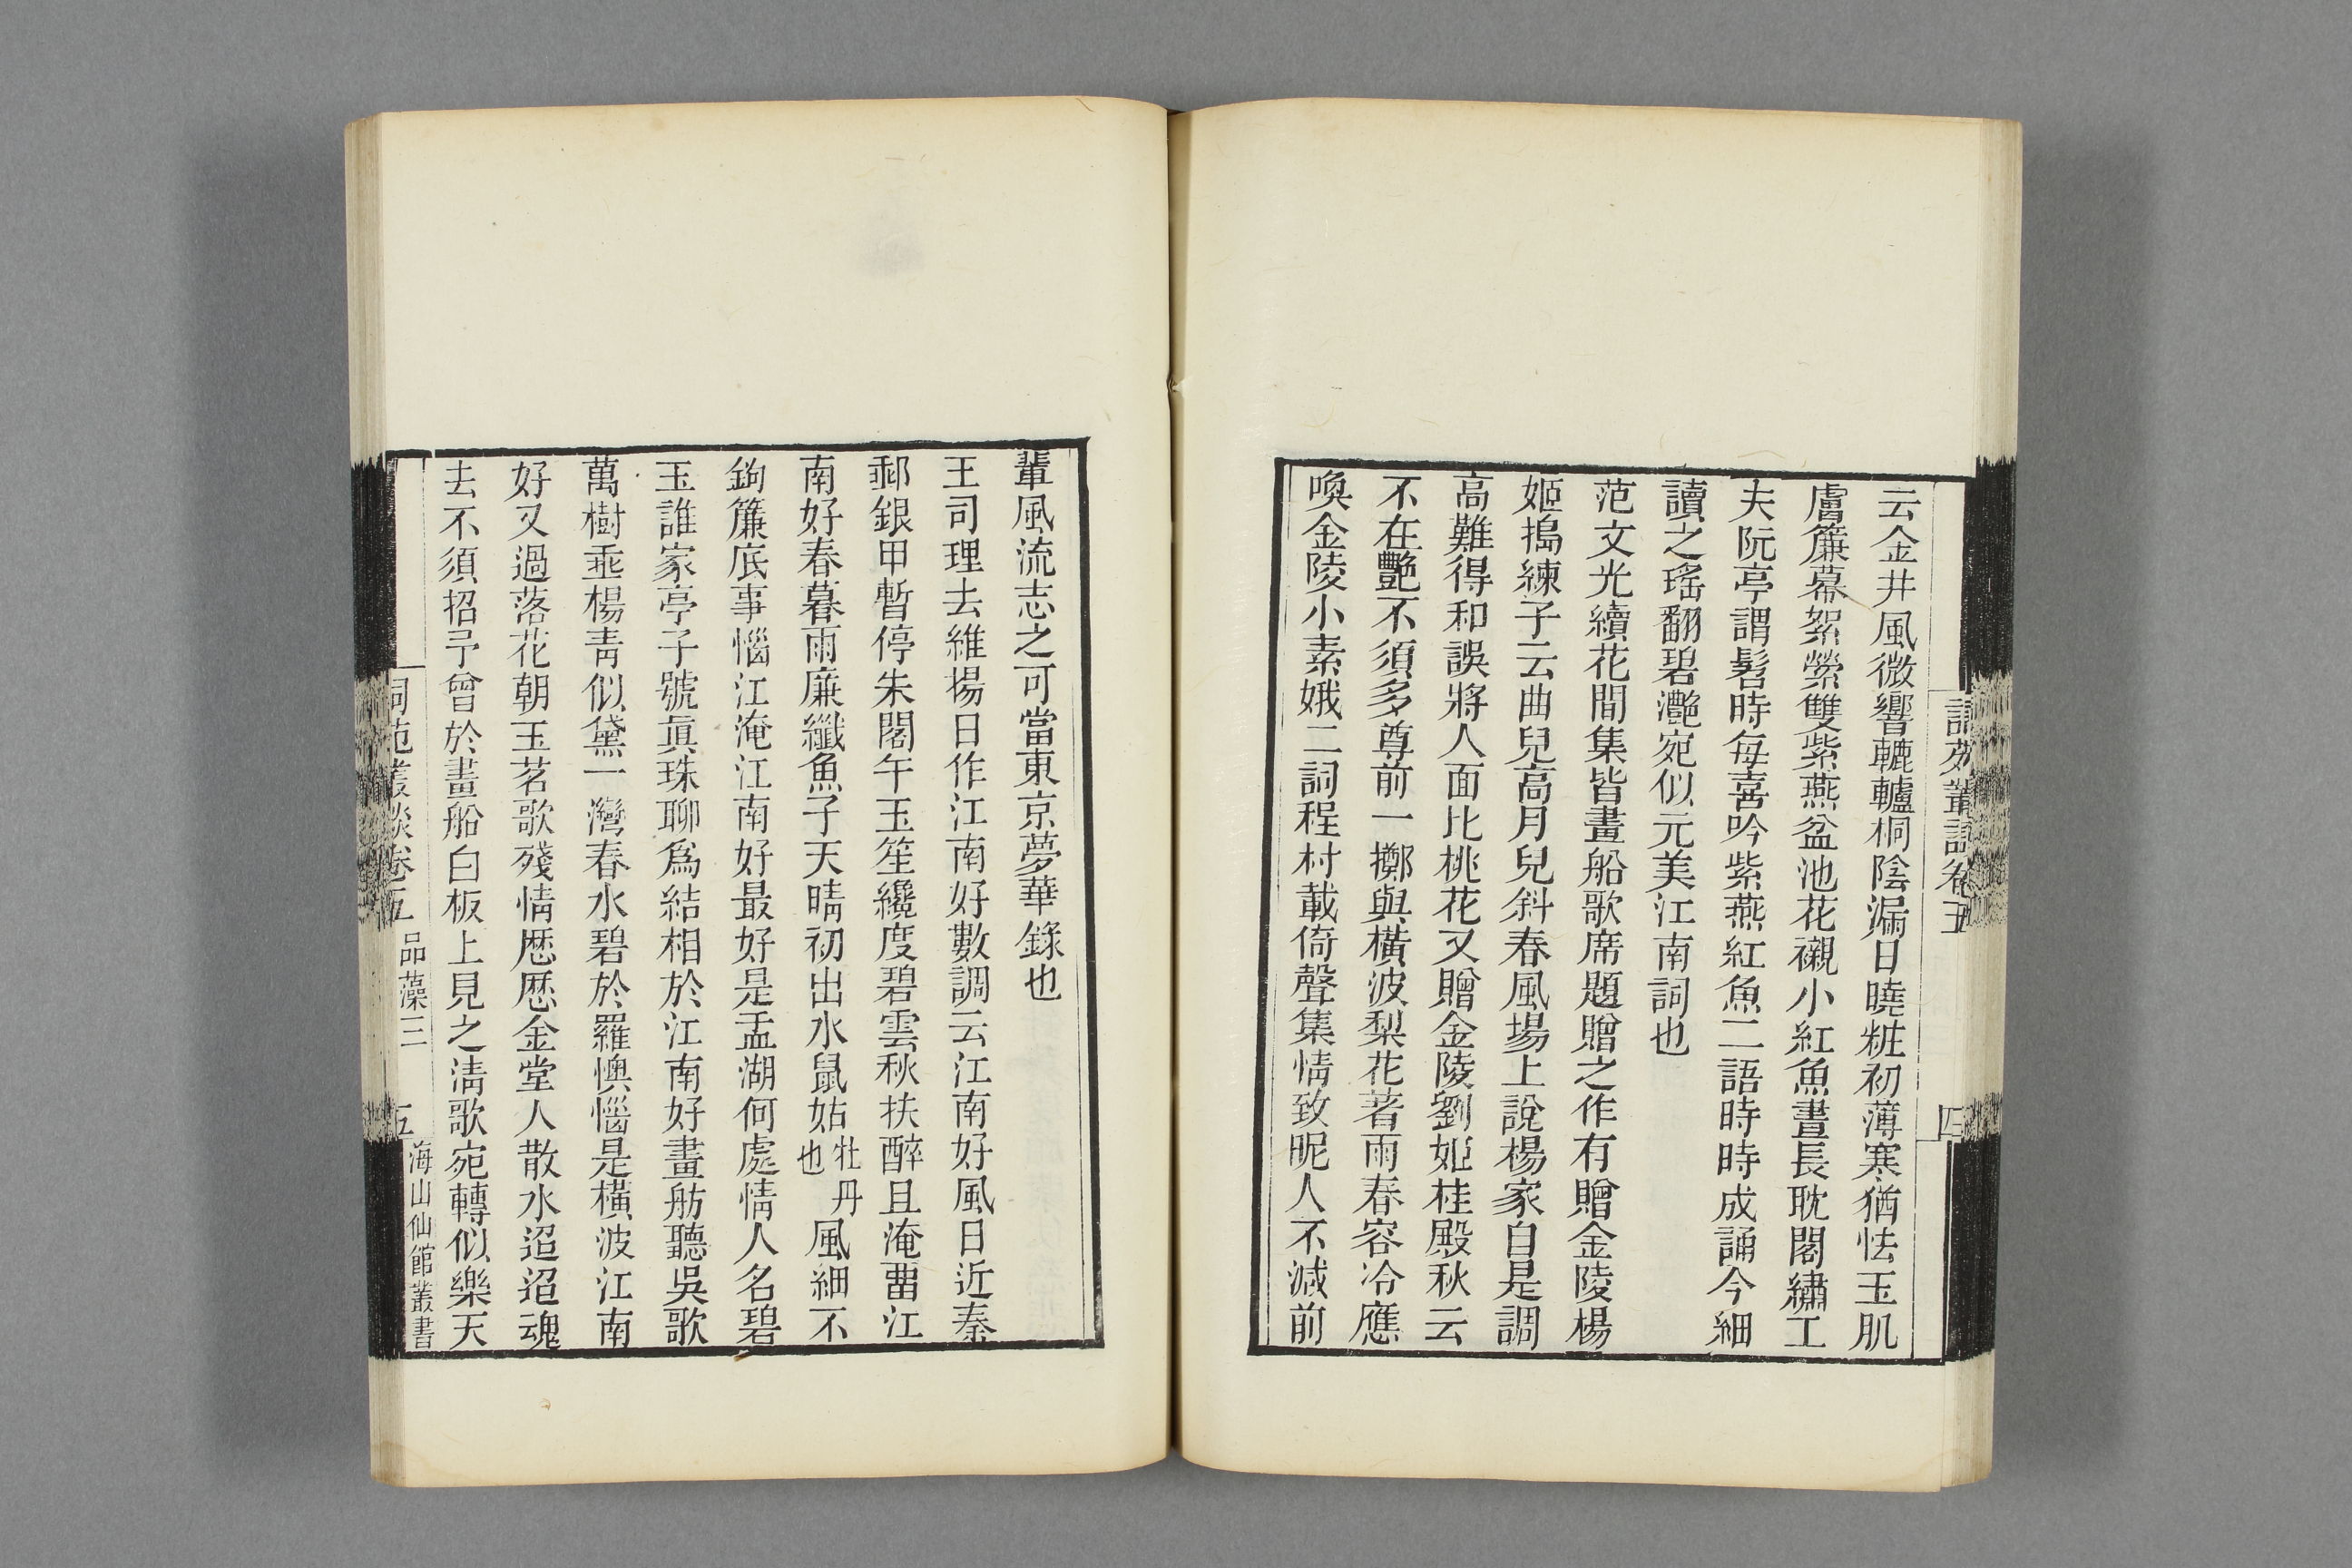 云金井風微響轆轤桐陰漏日曉粧初薄寒猶怯玉肌
膚簾幕絮縈雙紫燕盆池花襯小紅魚晝長耽閣繡工
夫阮亭謂髫時每喜吟紫燕紅魚二語時時成誦今細
讀之瑤翻碧灔宛似元美江南詞也
范文光續花間集皆畫船歌席題贈之作有贈金陵楊
姬搗練子云曲兒高月兒斜春風場上說楊家自是調
高難得和誤將人面比桃花又贈金陵劉姬桂殿秋云
不在艷不須多尊前一擲與橫波梨花著雨春容冷應
喚金陵小素娥二詞程村載倚聲集情致昵人不減前
輩風流志之可當東京夢華錄也
王司理去維揚日作江南好數調云江南好風日近秦
郵銀甲暫停朱閣午玉笙纔度碧雲秋扶醉且淹畱江
南好春暮雨廉纖魚子天晴初出水鼠姑牡丹也風細不
鉤簾底事惱江淹江南好最好是盂湖何處情人名碧
玉誰家亭子號眞珠聊爲結相於江南好畫舫聽吳歌
萬樹垂楊靑似黛一灣春水碧於羅懊惱是橫波江南
好又過落花朝玉茗歌殘情歷歷金堂人散水迢迢魂
去不須招予曾於畫船白板上見之淸歌宛轉似樂天
詞苑叢談卷五 品藻三 五 海山仙館叢書